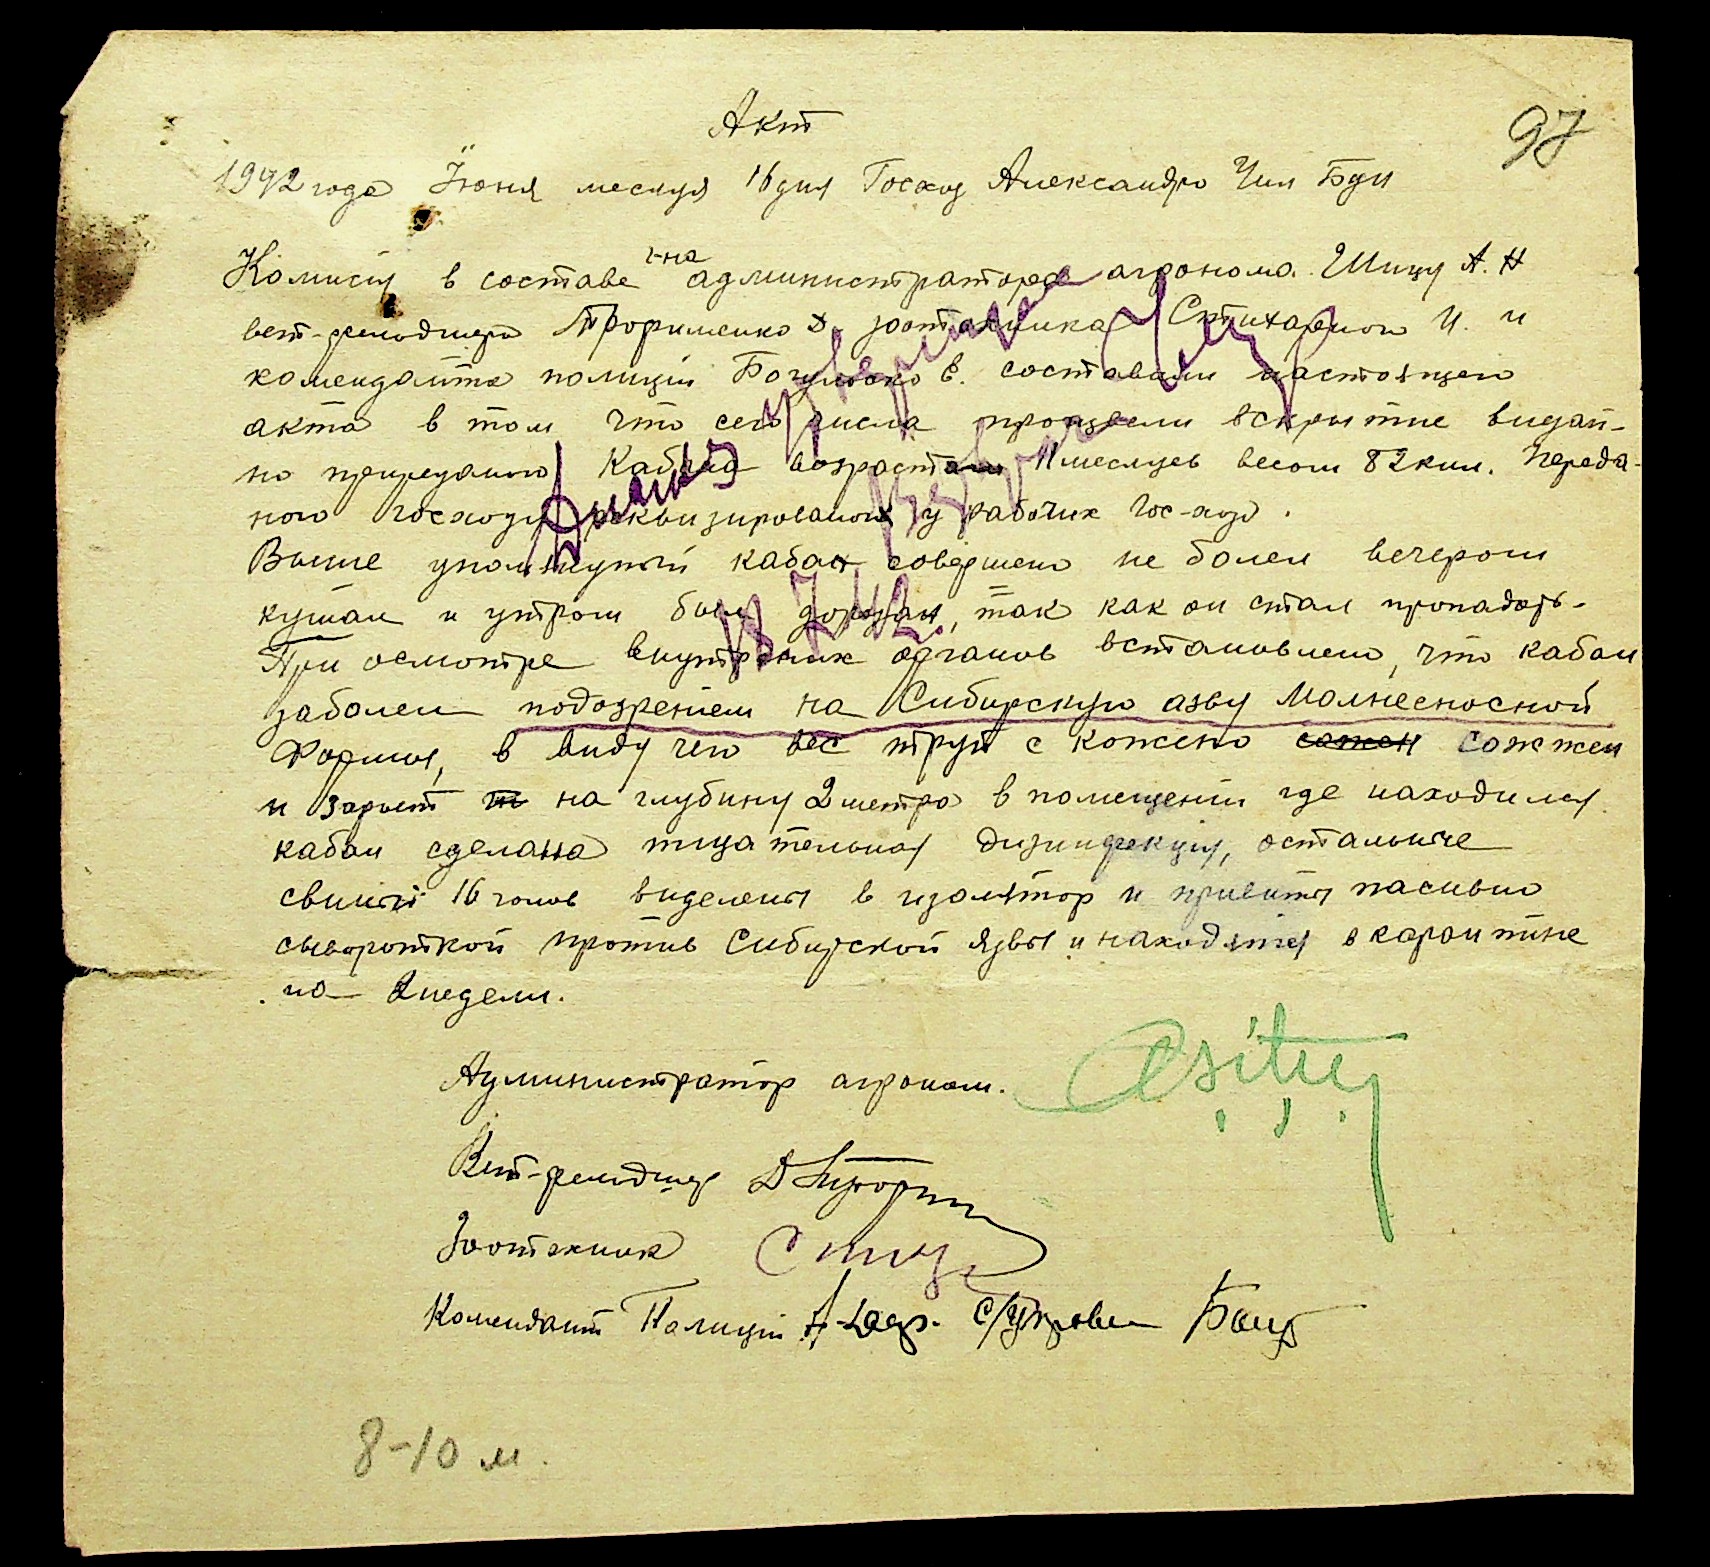 97
Акт
1942 года Июня месяця 16 дня Госхоз Александро Чел Бун
Комисия в составе г-на администратора агронома Шицу А. Н
вет-фельдшера Трофименко Д. зоотехника И. и
коменданта полиции Богуцько В. составили настоящего
акта в том что сего числа произвели вскрытие видан-
но прирезаного Кабана возрастам 11 месяцев весом 82 кил. переда-
ного госхозу реквизированого у рабочих Гос-хоза.
Выше упомянутый кабан совершено не болел вечером
кушал и утром был дорезан, так как он стал пропадать.
При осмотре внутрених органов встановлено, что кабан
заболел подозрением на Сибирскую азву Молнесносной
Формы, в виду чего вес труп с кожею сожен сожжен
и зарыт на глубину 2 метра в помещении где находился
кабан сделана тщательная дизинфекция, остальные
свиньи 16 голов виделены в изолятор и привиты пасивно
сывороткой против Сибирской язвы и находятся в карантине
на 2 недели.
18 7 42.
Администратор агроном.
Вет-фельдшер Д Трофим
Зоотехник
Комендант Полиции
8-10 м.